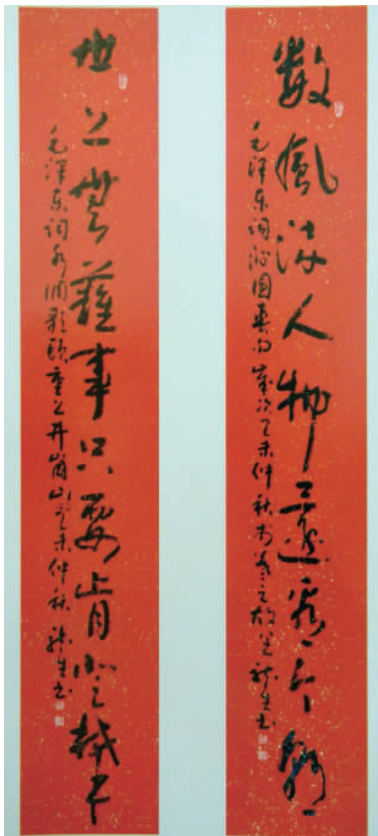 数風流人物還看今朝
毛泽东词沁园春句岁次乙未仲秋
世上無難事只要肯登攀
毛泽东词水调歌头重上井岗山乙未仲秋